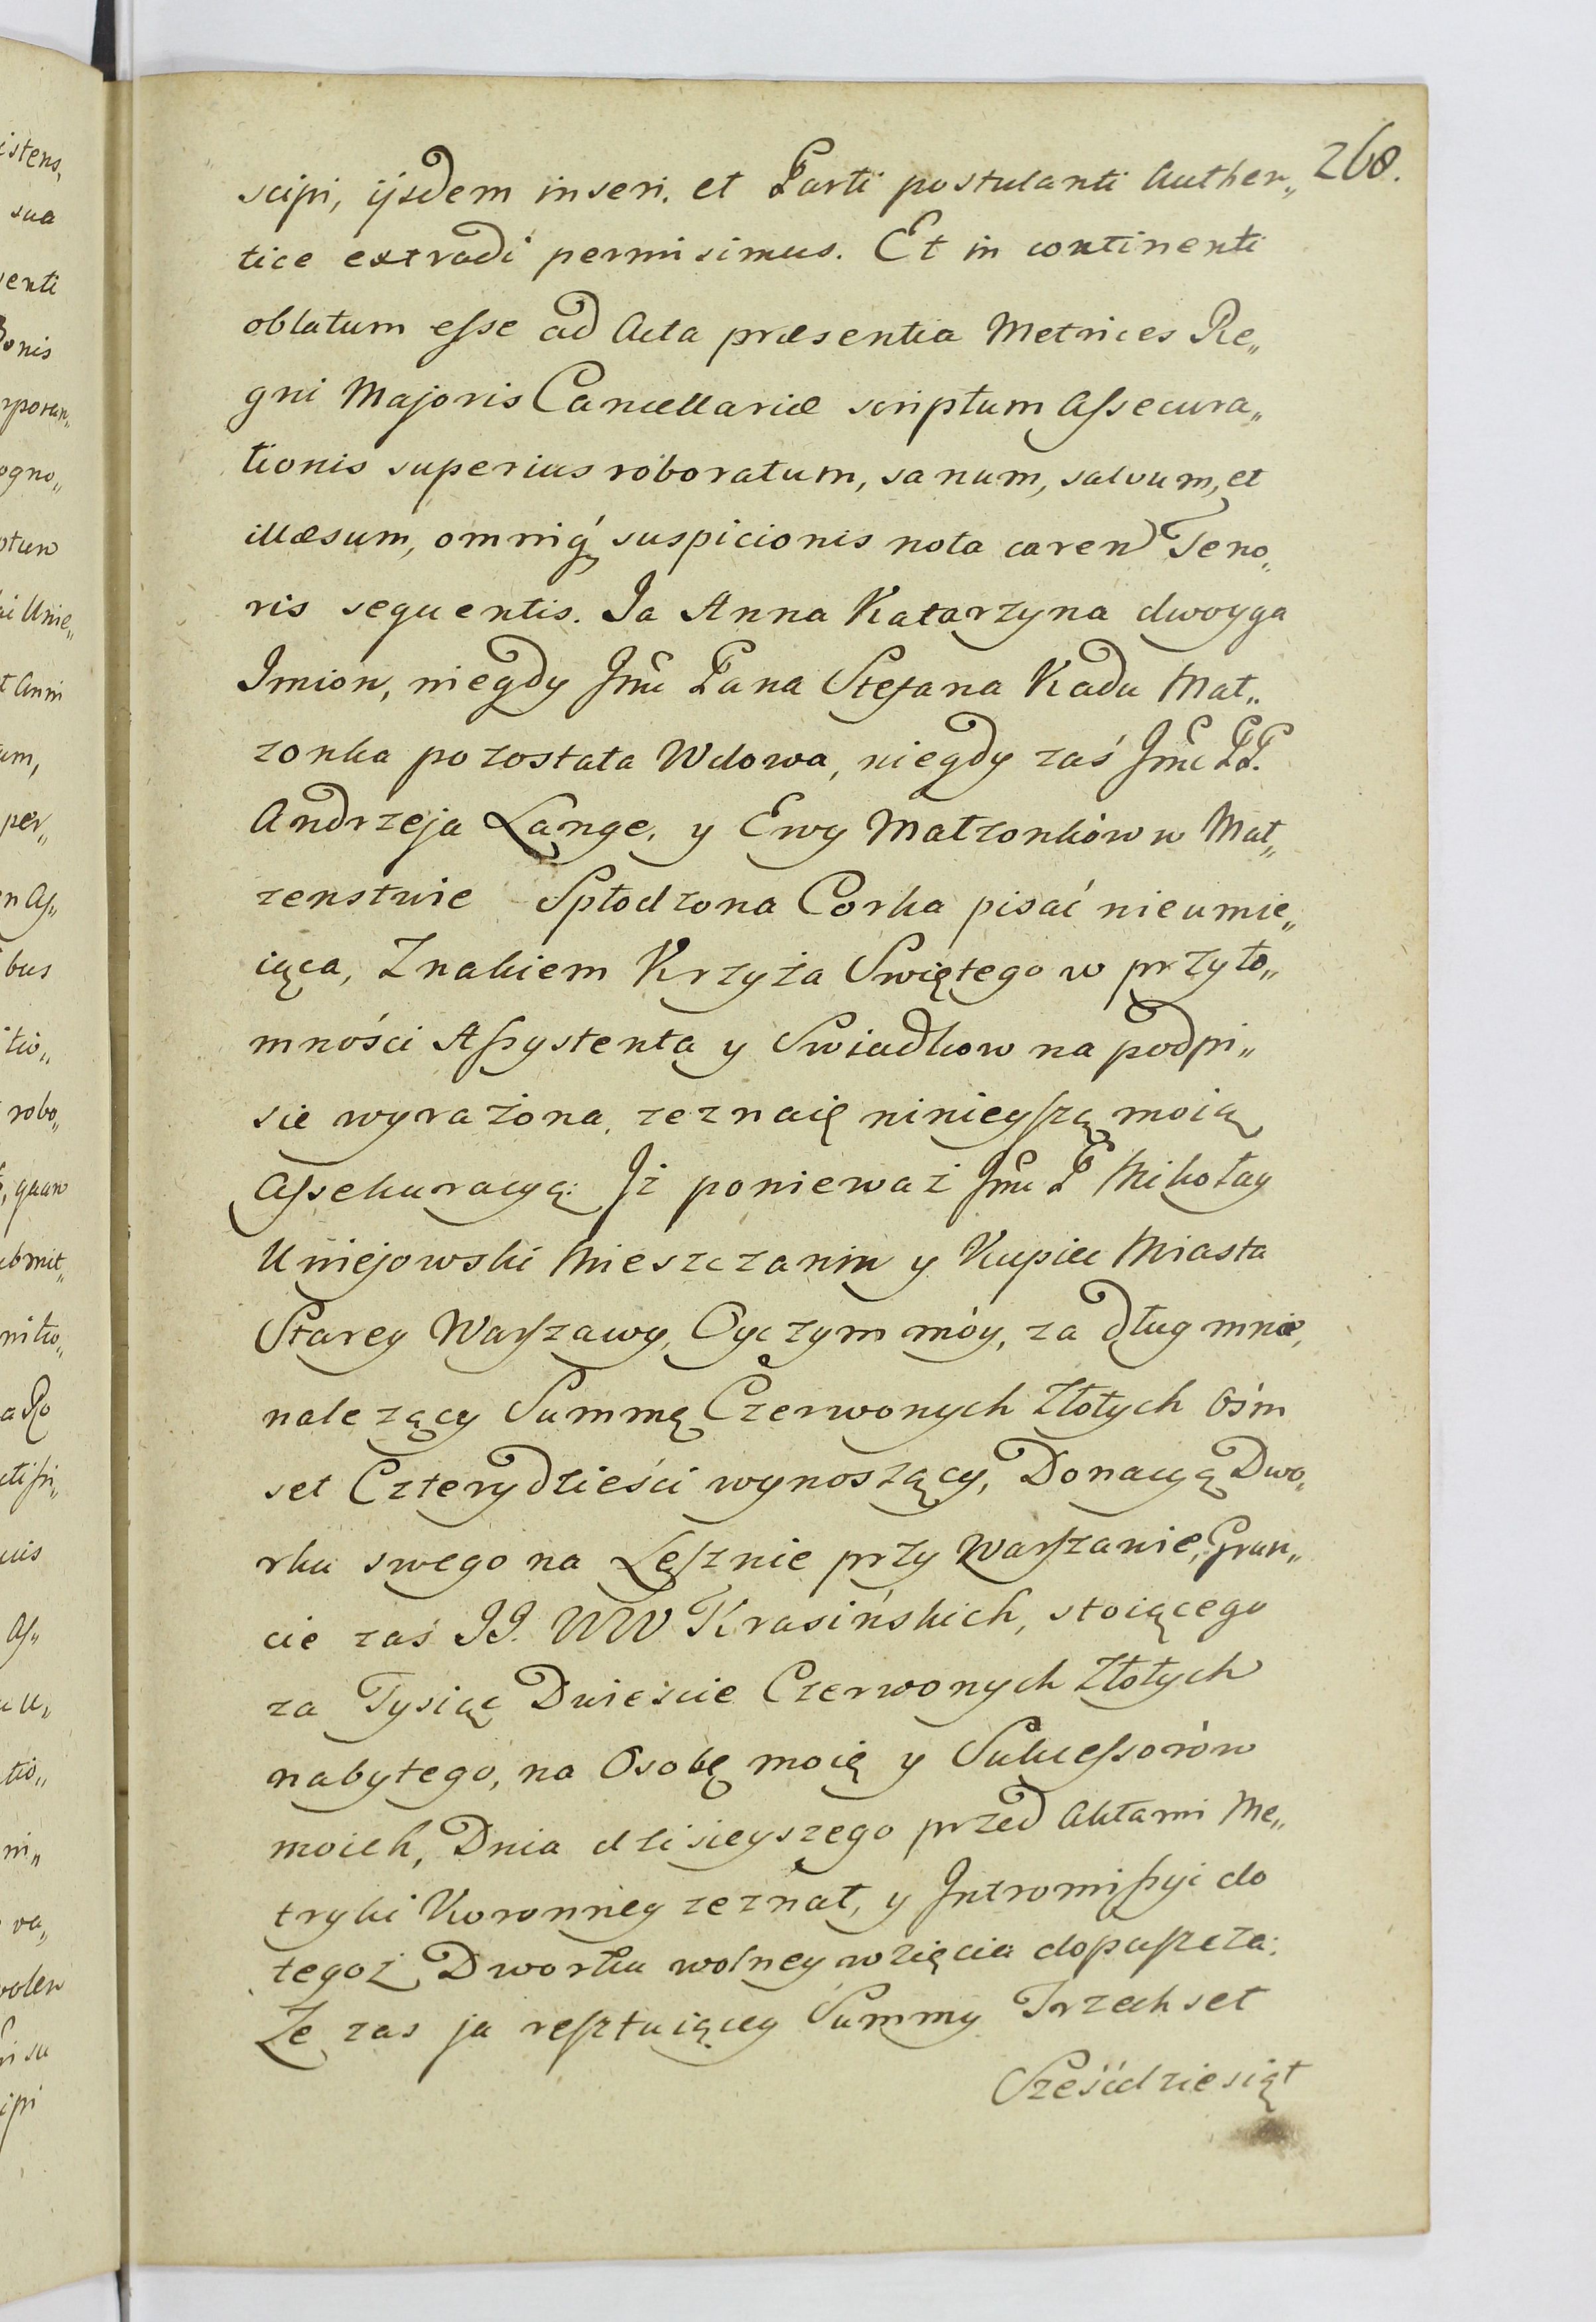 268.
scipi, ijsdem inseri. et Parti postulanti Authen„
tice extradi permisimus. Et in continenti
oblatum esse ad Acta præsentia Metrices Re„
gni Majoris Cancellariæ scriptum Assecura„
tionis superius roboratum, sanum, salvum, et
illæsum, omniq́ suspicionis nota caren Teno„
ris sequentis. Ja Anna Katarzyna dwoyga
Imion, niegdy Jmć Pana Stefana Kadu Mał„
zonka pozostała Wdowa, niegdy zaś Jmć PP.
Andrzeja Lange, y Ewy Małzonków w Mał„
zenstwie Spłodzona Corka pisać nieumie„
iąca, Znakiem Krzyża Swiętego w przyto„
mności Assystenta y Swiadkow na podpi„
sie wyrażona, zeznaię ninieyszą moią
Assekuracyą: Jż ponieważ Jmć P Mikołay
Uniejowski Mieszczanin y Kupiec Miasta
Starey Warszawy, Oyczym móy, za dług mnie,
nalezący Summę Czerwonych Złotych Ośm
set Czterydzieści wynoszący, Donacyą Dwo„
rku swego na Lesznie przy Warszawie, Grun„
cie zaś JJ. WW Krasińskich, stoiącego
za Tysiąc Dwieście Czerwonych Złotych
nabytego, na Osobę moię y Sukcessorów
moich, Dnia dzisieyszego przed Aktami Me„
tryki Koronney zeznał, y Intromissyi do
tegoż Dworku wolney wzięcia dopuszcza:
Ze zas ja resztuiącey Summy Trzechset
Sześćdziesiąt